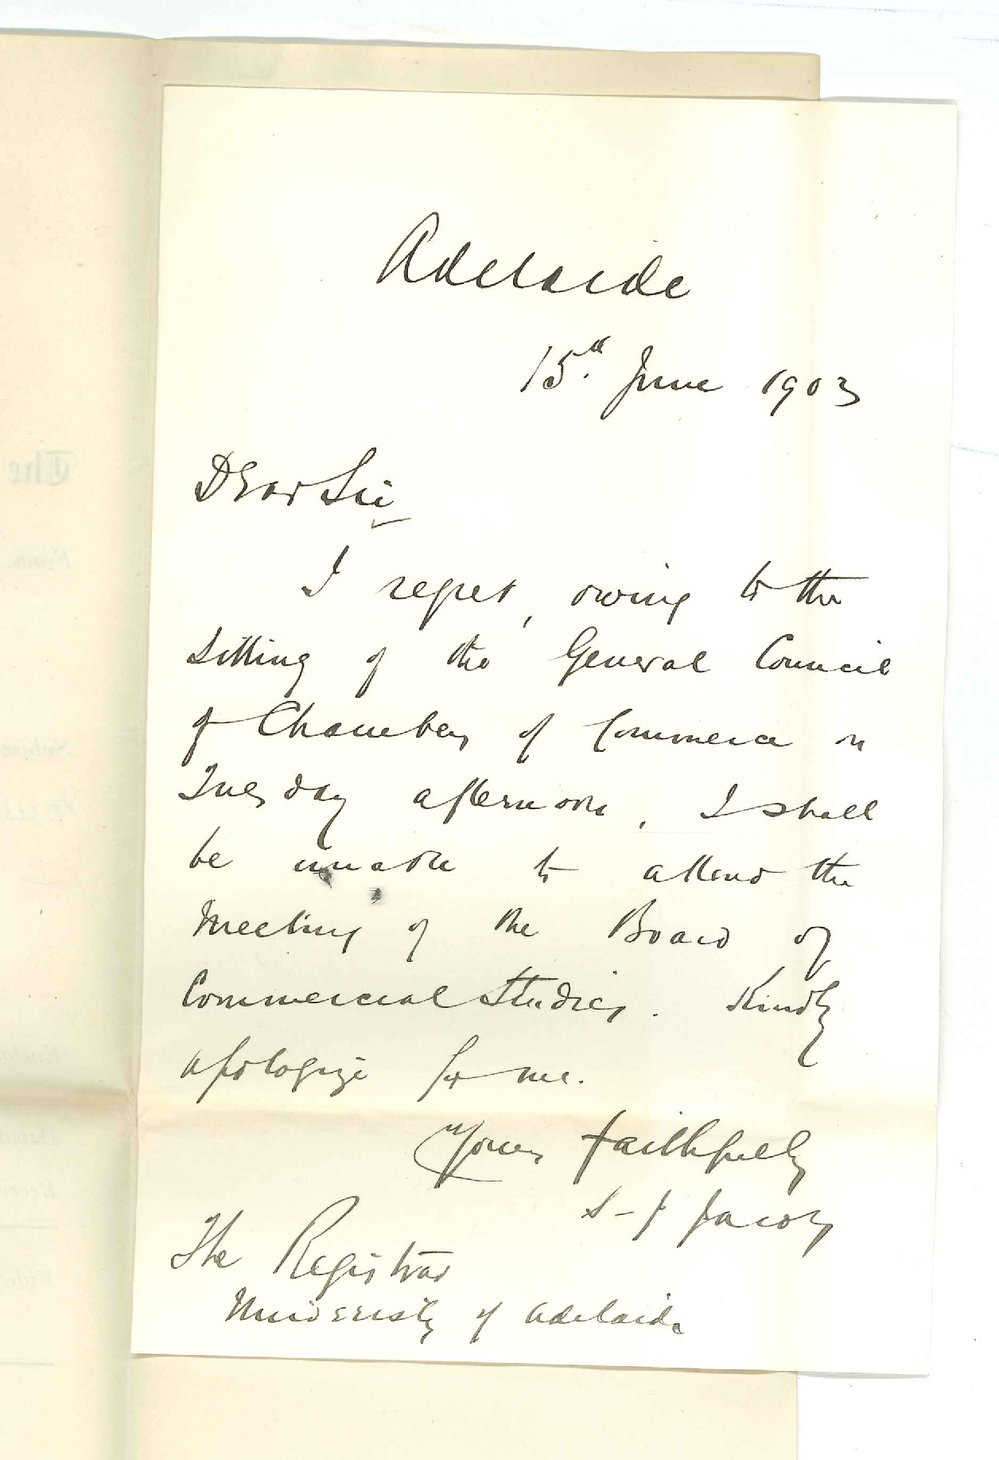 Adelaide
15th June 1903
Dear Sir
I regret, owing to the
sitting of the General Council
of Chambers of Commerce on
Tuesday afternoon, I shall
be unable to attend the
Meeting of the Board of
Commercial Studies. Kindly
apologize for me.
Yours faithfully
S-J Jacoby
The Registrar
University of Adelaide